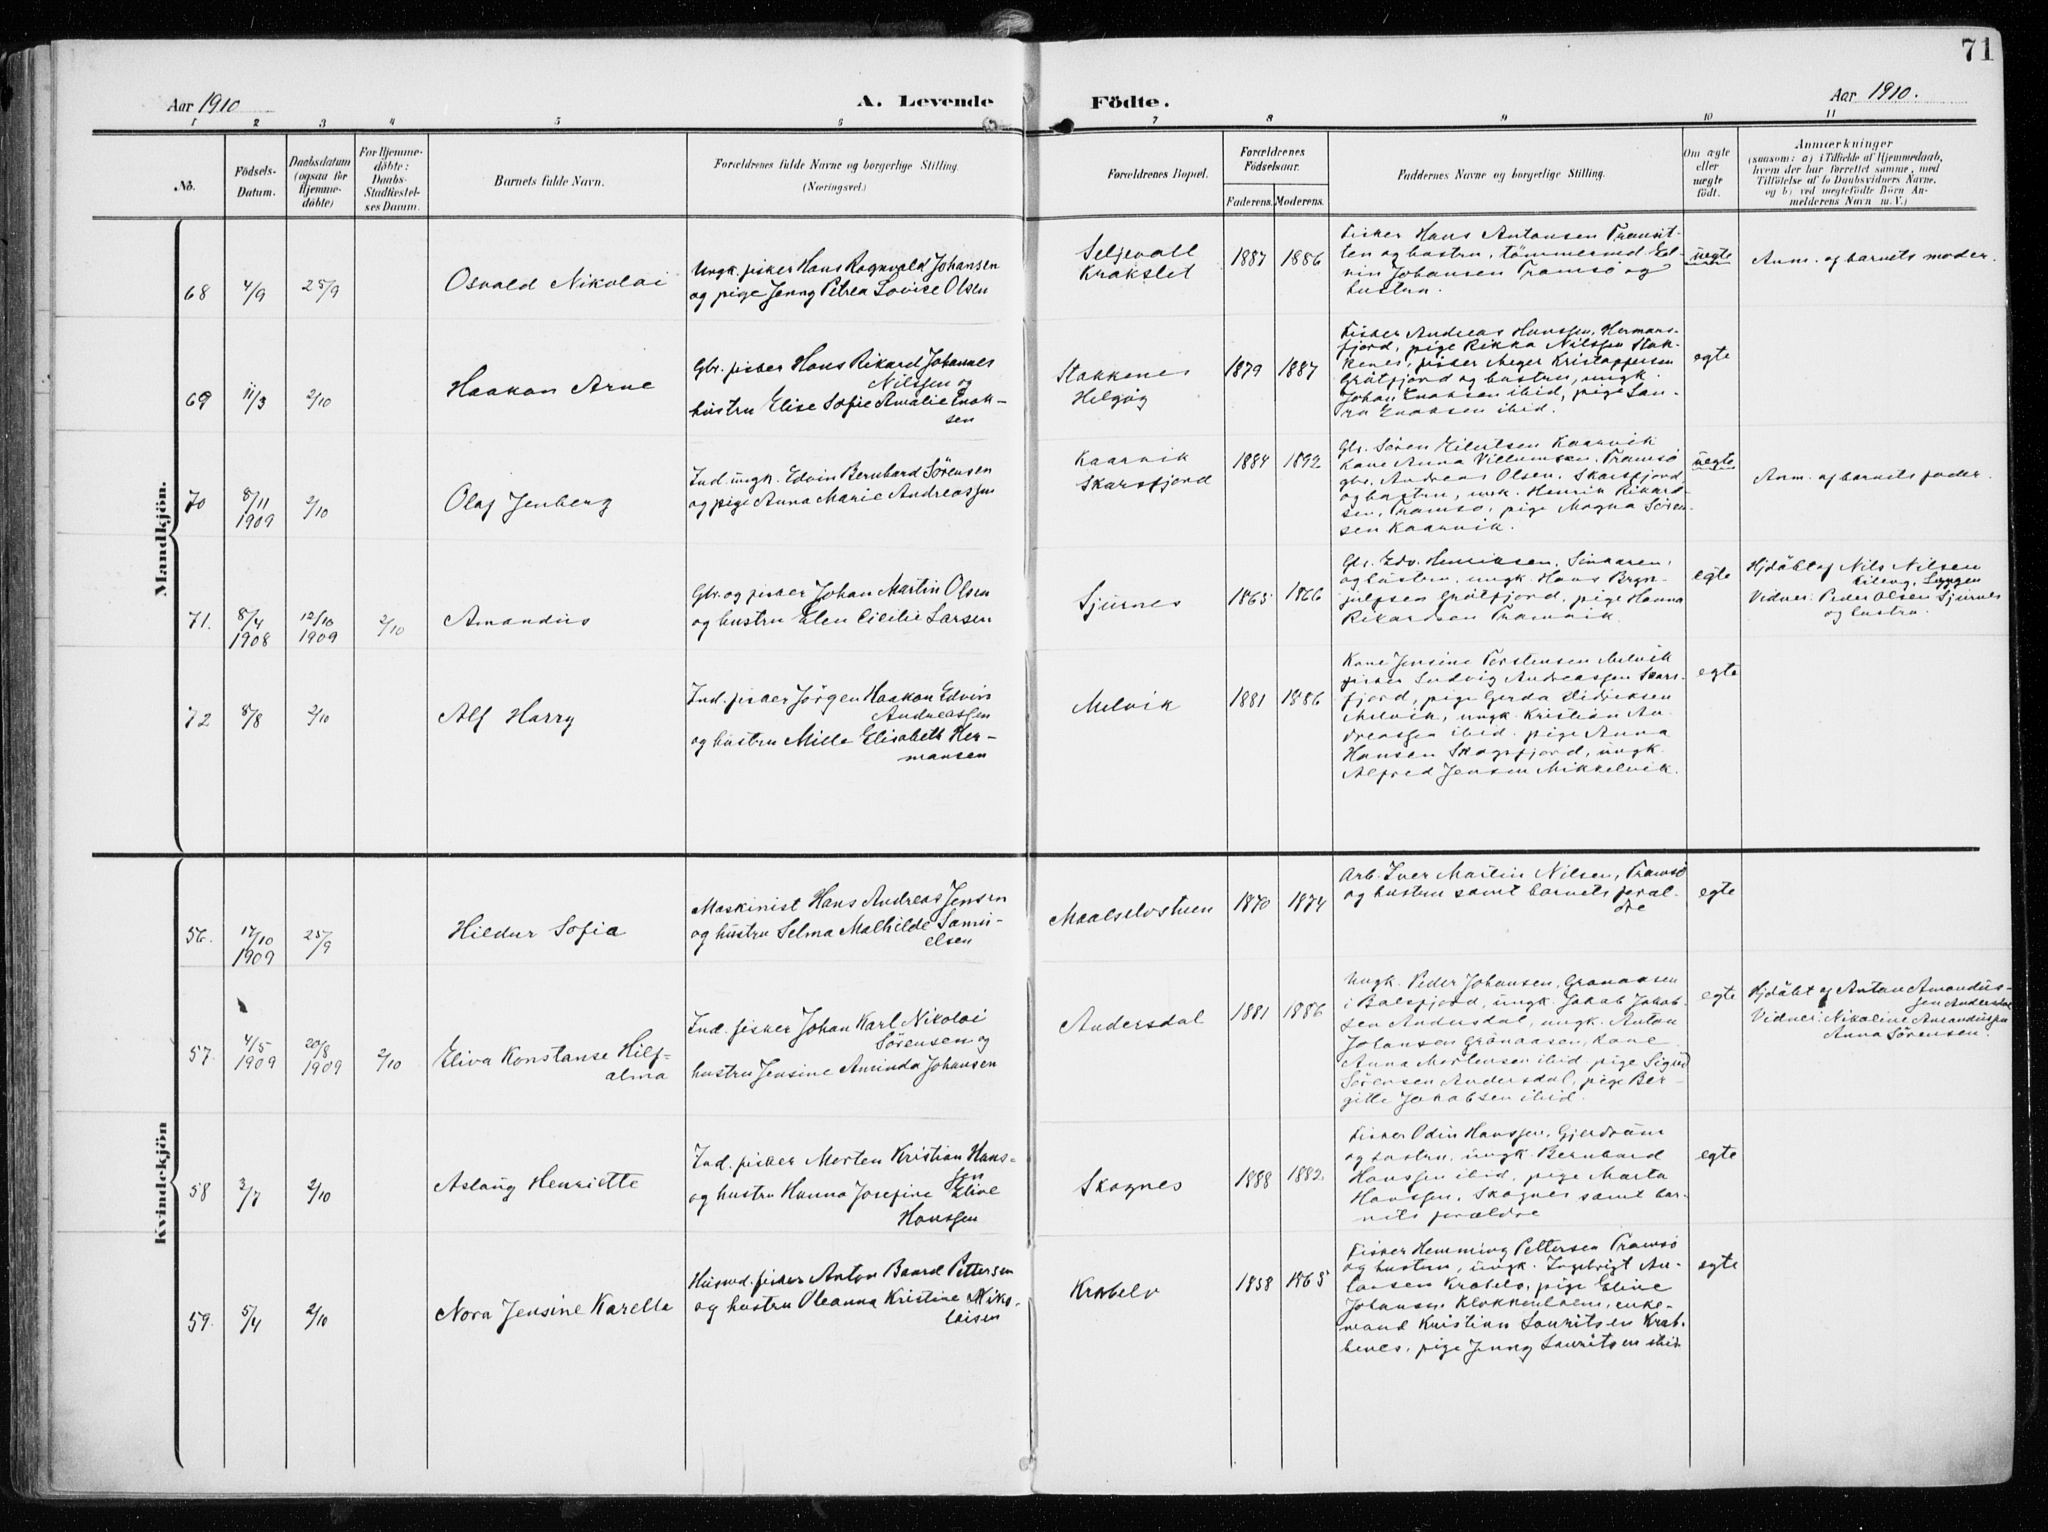 71
Aar 1910
A. Levende
Födte.
Aar 1910.
1 2 3 4 5 6 7 8 9 10 11
No.
Födsels-
Datum.
Daabsdatum
(ogsaa for
Hjemme-
döbte)
For Hjemme-
döbte:
Daabs-
Stadfæstel-
ses Datum.
Barnets fulde Navn.
Forældrenes fulde Navne og borgerlige Stilling.
(Næringsvei.)
Forældrenes Bopæl.
Forældrenes
Födselsaar.
Faderens. Moderens.
Faddernes Navne og borgerlige Stilling.
Om ægte
eller
uægte
födt.
Anmærkninger
(saasom: a) i Tilfælde af Hjemmedaab,
hvem der har forrettet samme, med
Tilföielse af to Daabsvidners Navne,
og b) ved uægtefödte Börn An-
melderens Navn m. V.)
Mandkjön.
68 4/9 25/9
Osvald Nikolai
Ungk. fisker Hans Ragnvald Johansen
og pige Jenny Petrea Lovise Olsen
Seljevoll
Krokslet
1887 1886
Fisker Hans Antonsen Tromsö
og hustru, tömmermd
Johansen Tromsö og
hustru.
uegte
Anm. og barnets moder.
69 11/3 2/10
Haakon Arne
Gbr. fisker Hans Rikard Johannes
Nilssen og
hustru Elise Sofie Amalie Enok-
sen
Stakkenes
Helgöy
1879 1887
Fisker Andreas Hanssen, Hermans-
fjord, pige Rikka Nilssen Stak-
kenes, fisker Meyer Kristoffersen
Gråtfjord og hustru, ungk.
Johan Enoksen ibid, pige Lau-
ra Enoksen ibid.
egte
70 8/11
1909 2/10
Olaf Jenberg
Ind. ungk. Edvin Bernhard Sörensen
og pige Anna Marie Andreassen
Kaarvik
Skarsfjord
1884 1892
Gbr. Sören Kilutsen Kaarvik
Kone Anna Villumsen, Tromsö
gbr. Andreas Olsen, Skarsfjord,
og hustru, ungk. Henrik Rikard-
sen, Tromsö, pige Magna Sören-
sen Kaarvik.
uegte
Anm. af barnets fader.
71. 8/4
1908 12/10
1909 2/10
Amandus
Gbr. og fisker Johan Martin Olsen
og hustru Elen Cicilie Larsen
Sjurnes
1865 1866
Gbr. Edv. Henriksen,
og hustru, ungk. Hans Bryn-
julfsen Gråtfjord, pige Hanna
Rikardsen Tromvik.
egte
Hjdöbt af Nils Nilsen
Lyngen
Vidner: Peder Olsen Sjurnes
og hustru.
72 8/8 2/10
Alf Harry
Ind. fisker Jörgen Haakon Edvin
Andreassen
og hustru Mille Elisabeth Her-
mansen
Melvik
1881 1886
Kone Jensine Torstensen Melvik
fisker Ludvig Andreassen Skars-
fjord, pige Gerda Didriksen
Melvik, ungk. Kristian An-
dreassen ibid. pige Anna
Hansen Skogsfjord, ungk.
Alfred Jensen Mikkelvik.
egte
Kvindekjön
56. 17/10
1909 25/9
Hildur Sofia
Maskinist Hans Andreas Jensen
og hustru Selma Mathilde Samu-
elsen
Maalselvstuen
1870 1874
Arb. Iver Martin Nilsen, Tromsö
og hustru samt barnets foræl-
dre
egte
57. 4/5
1909 20/8
1909 2/10
Eliva Konstanse Hilf-
alma
Ind. fisker Johan Karl Nikolai
Sörensen og
hustru Jensine Aminda Johansen
Andersdal
1881 1886
Ungk. Peder Johansen, Granaasen
i Balsfjord, ungk. Jakob Jakob-
sen Andersdal, ungk. Anton
Johansen Granaasen, kone
Anna Mortensen ibid. pige Sigrid
Sörensen Andersdal, pige Ber-
gitte Jakobsen ibid.
egte
Hjdöbt af Anton Amandus-
sen Andersdal
Vidner: Nikoline Amandussen
Anna Sörensen.
58 3/7 2/10
Aslaug Henriette
Ind. fisker Morten Kristian Hans-
sen
og hustru Hanna Josefine Eline
Hanssen
Skognes
1888 1882.
Fisker Odin Hanssen, Gjerdrum
og hustru, ungk. Bernhard
Hanssen ibid, pige Marta
Hanssen, Skognes samt bar-
nets forældre
egte
59. 5/4 2/10
Nora Jensine Karella
Husmd. fisker Anton Baard Pettersen
og hustru Oleanna Kristine Niko-
laisen
Krabelv
1858 1865
Fisker Hemming Pettersen Tromsö
og hustru, ungk. Ingebrigt An-
tonsen Krabelv, pige Eline
Johansen enke-
mand Kristian Lauritsen Krab-
benes, pige Jenny Lauritsen ibid.
egte